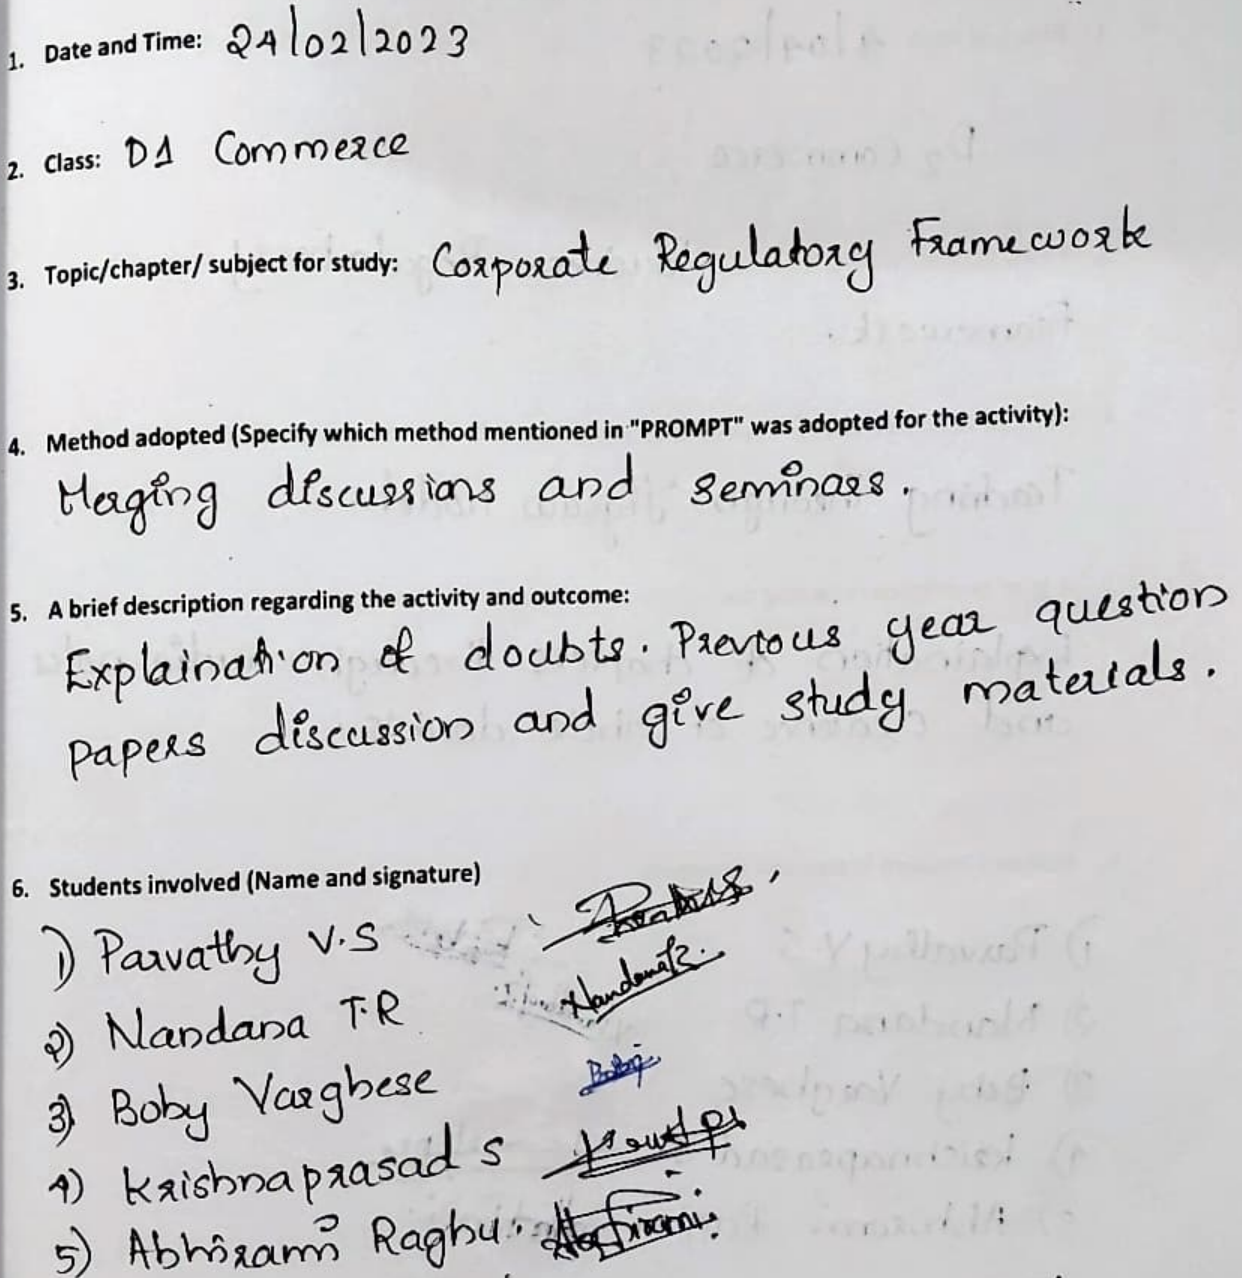 1. Date and Time: 24/02/2023
2. Class: D1 Commerce
3. Topic/chapter/ subject for study: Corporate Regulatory Framework
4. Method adopted (Specify which method mentioned in "PROMPT" was adopted for the activity):
Merging discussions and seminars.
5. A brief description regarding the activity and outcome:
Explaination of doubts. Previous year question
papers discussion and give study materials.
6. Students involved (Name and signature)
1) Parvathy V.S
2) Nandana T.R Nandana T.R.
3) Boby Varghese Boby
4) Krishnaprasad S
5) Abhirami Raghu. Abhirami